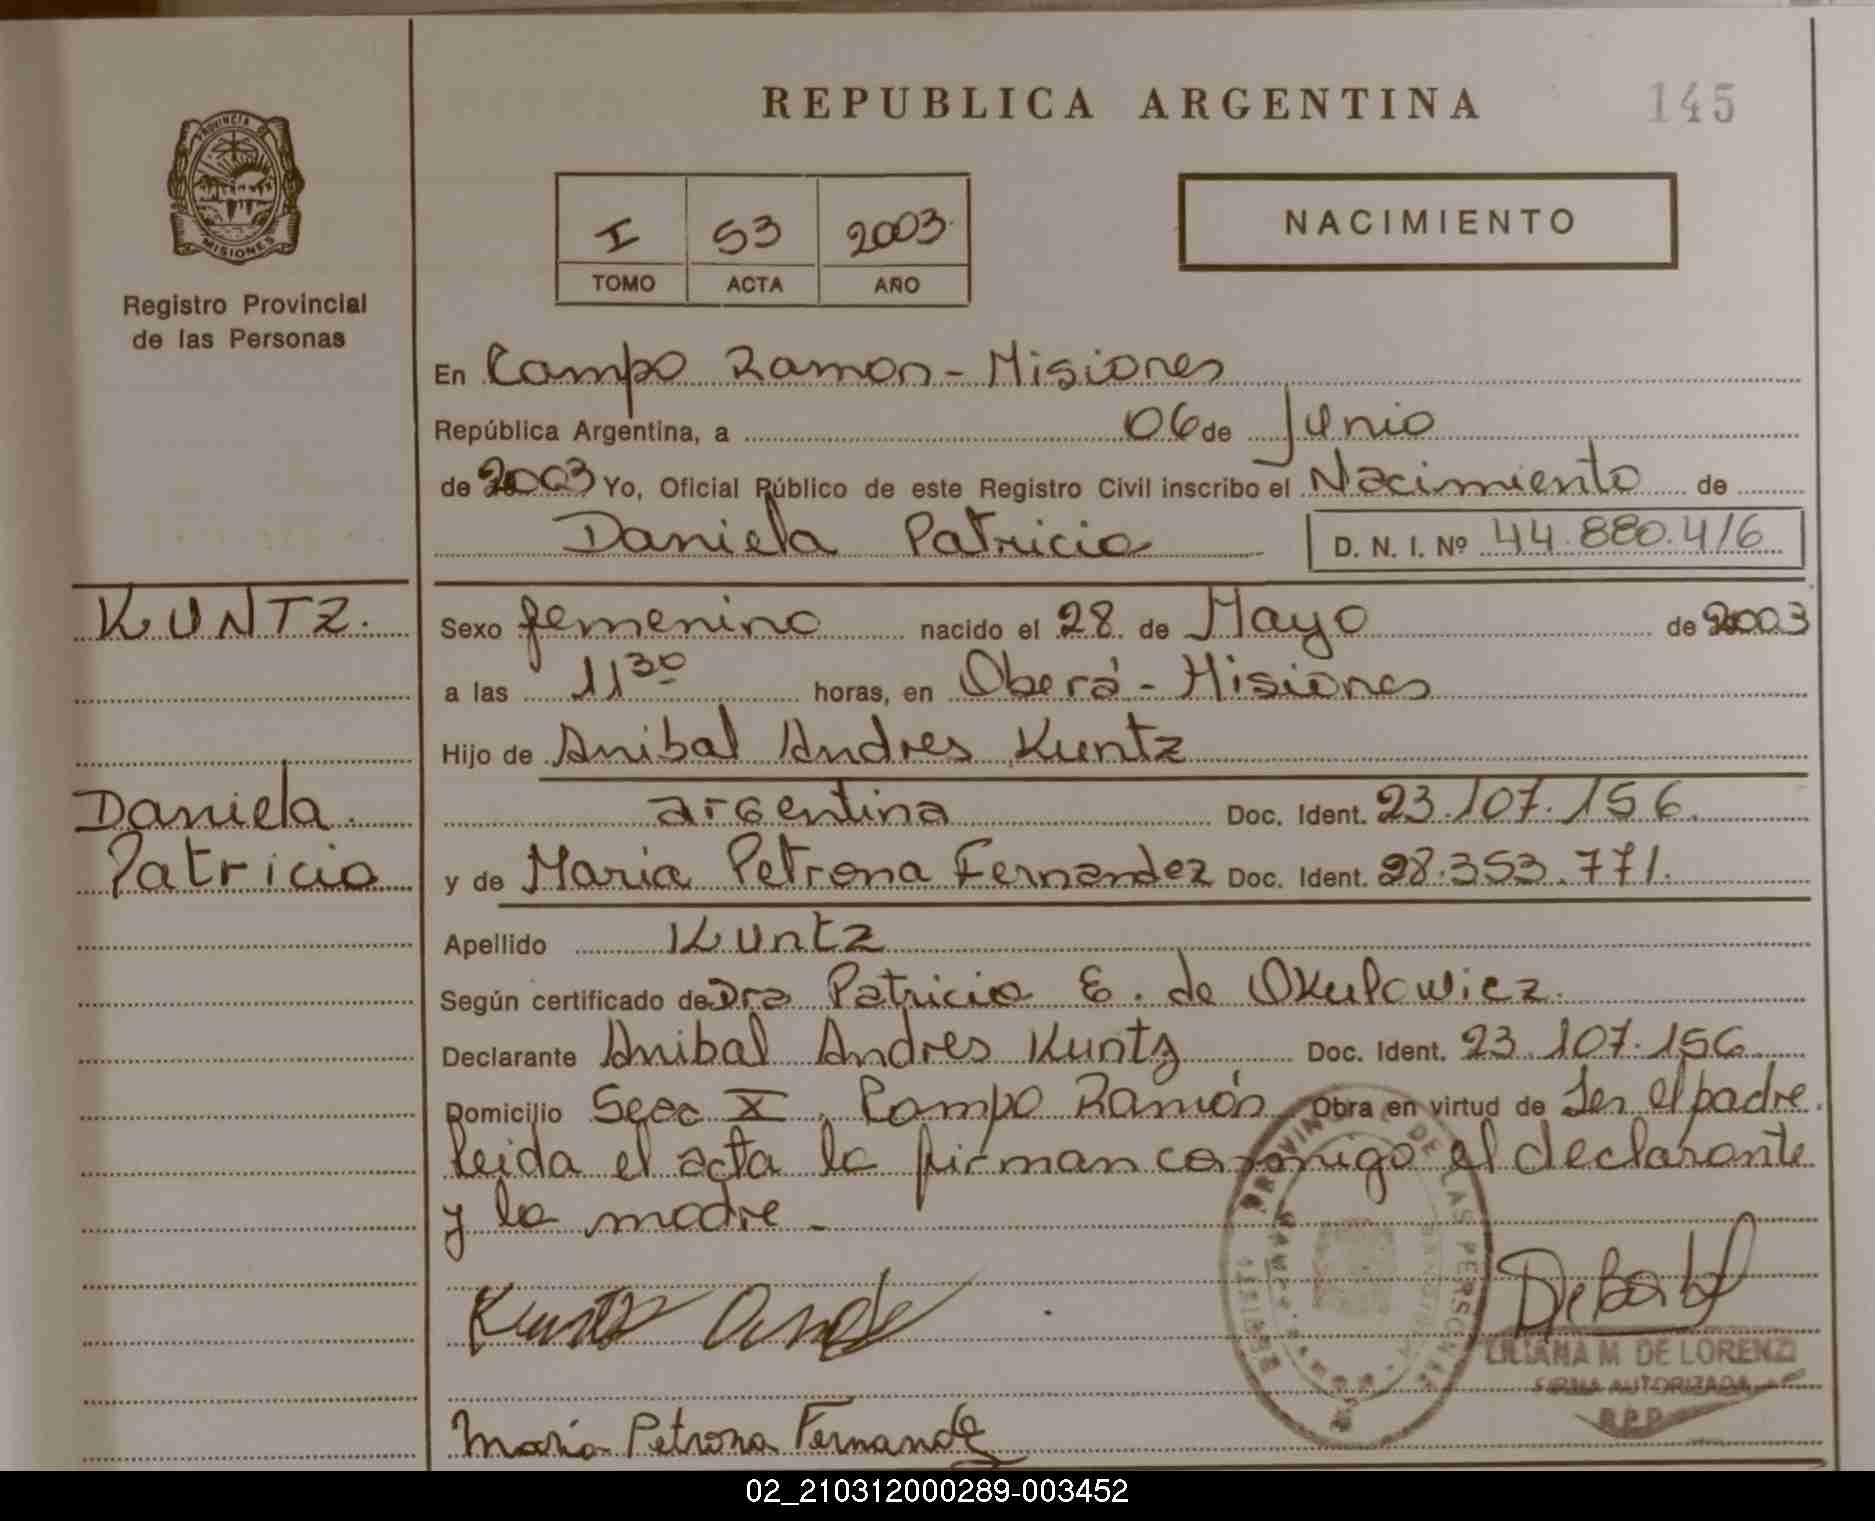 REPUBLICA ARGENTINA
145
PROVINCIA DE
MISIONES
Registro Provincial
de las Personas
I 53 2003
TOMO ACTA AÑO
NACIMIENTO
En Campo Ramon - Misiones
República Argentina, a 06 de Junio
de 2003 Yo, Oficial Público de este Registro Civil inscribo el Nacimiento de
Daniela Patricia D. N. I. Nº 44.880.416
KUNTZ.
Daniela
Patricia
Sexo femenino nacido el 28 de Mayo de 2003
a las 11 30 horas, en Oberá - Misiones
Hijo de Anibal Andres Kuntz
argentina Doc. Ident. 23.107.156.
y de Maria Petrona Fernandez Doc. Ident. 28.353.771.
Apellido Kuntz
Según certificado de Dra Patricia E. de Okulowicz.
Declarante Anibal Andres Kuntz Doc. Ident. 23.107.156
Domicilio Secc X, Campo Ramón Obra en virtud de Ser el padre.
leida el acta la firman conmigo el declarante
y la madre. -
Kuntz Andre
Maria Petrona Fernandez
PROVINCIAL DE LAS PERSONAS
LILIANA M DE LORENZI
FIRMA AUTORIZADA
R.P.P.
02_210312000289-003452